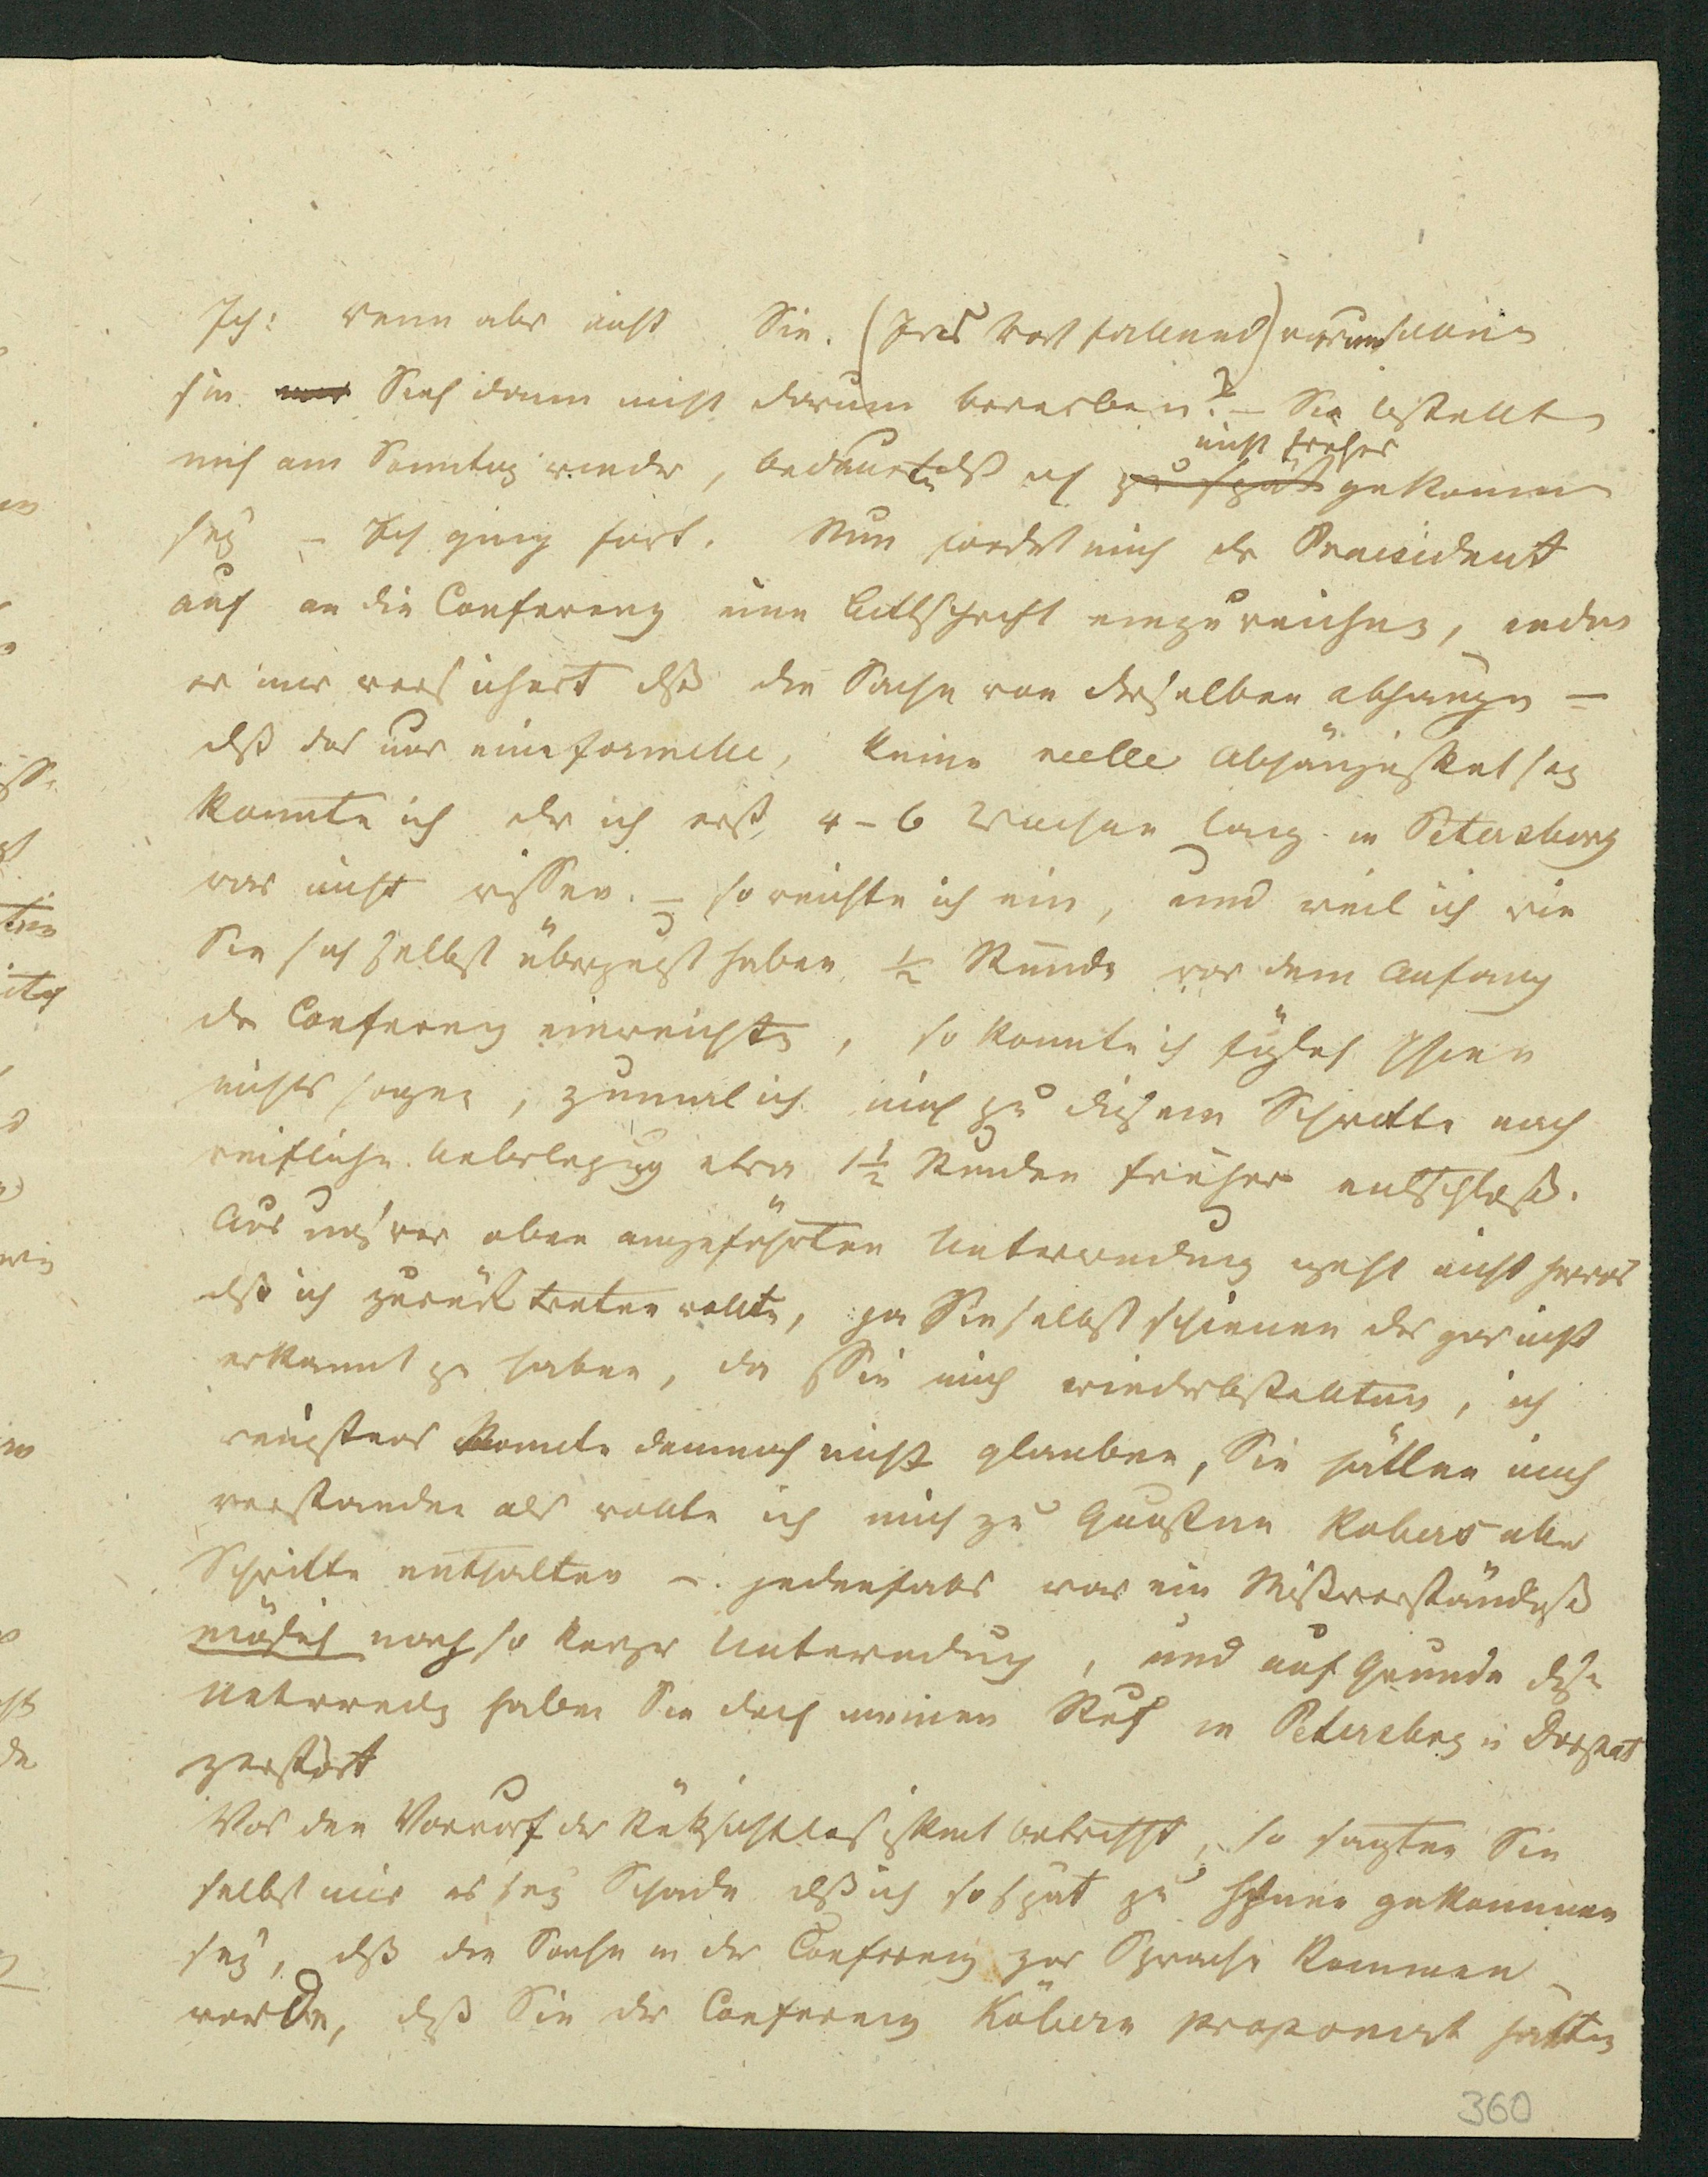 Ich: wenn aber nicht Sie. (Ihr Wort haltend) warum
Sie sich dann nicht darum bewerben? – Sie bestellten
mich am Sonntag wieder, bedauerten dß ich zu spät nicht früher gekommen
sey – Ich ging fort. Nun fordert mich der Praesident
auf an die Conferenz eine Bittschrift einzureichen, indem
er mir versichert dß die Sache von derselben abhange –
dß das nur eine formelle, keine reelle Abhängigkeit sey
konnte ich der ich erst 4–6 Wochen lang in Petersburg
war nicht wissen. – so reichte ich ein, und weil ich wie
Sie sich selbst überzeugt haben ½ Stunde vor dem Anfang
der Conferenz einreichte, so konnte ich füglich Ihnen
nichts sagen, zumal ich mich zu diesem Schritte nach
reiflicher Ueberlegung etwa 1½ Stunden früher entschloß.
Aus unsrer oben angeführten Unterredung geht nicht hervor
dß ich zurück treten wollte, ja Sie selbst schienen das gar nicht
erkannt zu haben, da Sie mich wiederbestellten, ich
wenigstens konnte demnach nicht glauben, Sie hätten mich
verstanden als wollte ich mich zu Gunsten Köbers aller
Schritte enthalten –. jedenfalls war ein Mißverständniß
möglich nach so kurzer Unterredung, und auf Grunde dieser
Unterredg haben Sie doch meinen Ruf in Petersburg u Dorpat
zerstört
Was den Vorwurf der Rücksichtslosigkeit betrifft, so sagten Sie
selbst mir es sey Schade dß ich so spät zu Ihnen gekommen
sey, dß die Sache in der Conferenz zur Sprache kommen
werde, dß Sie der Conferenz Köbern proponirt hätten
360